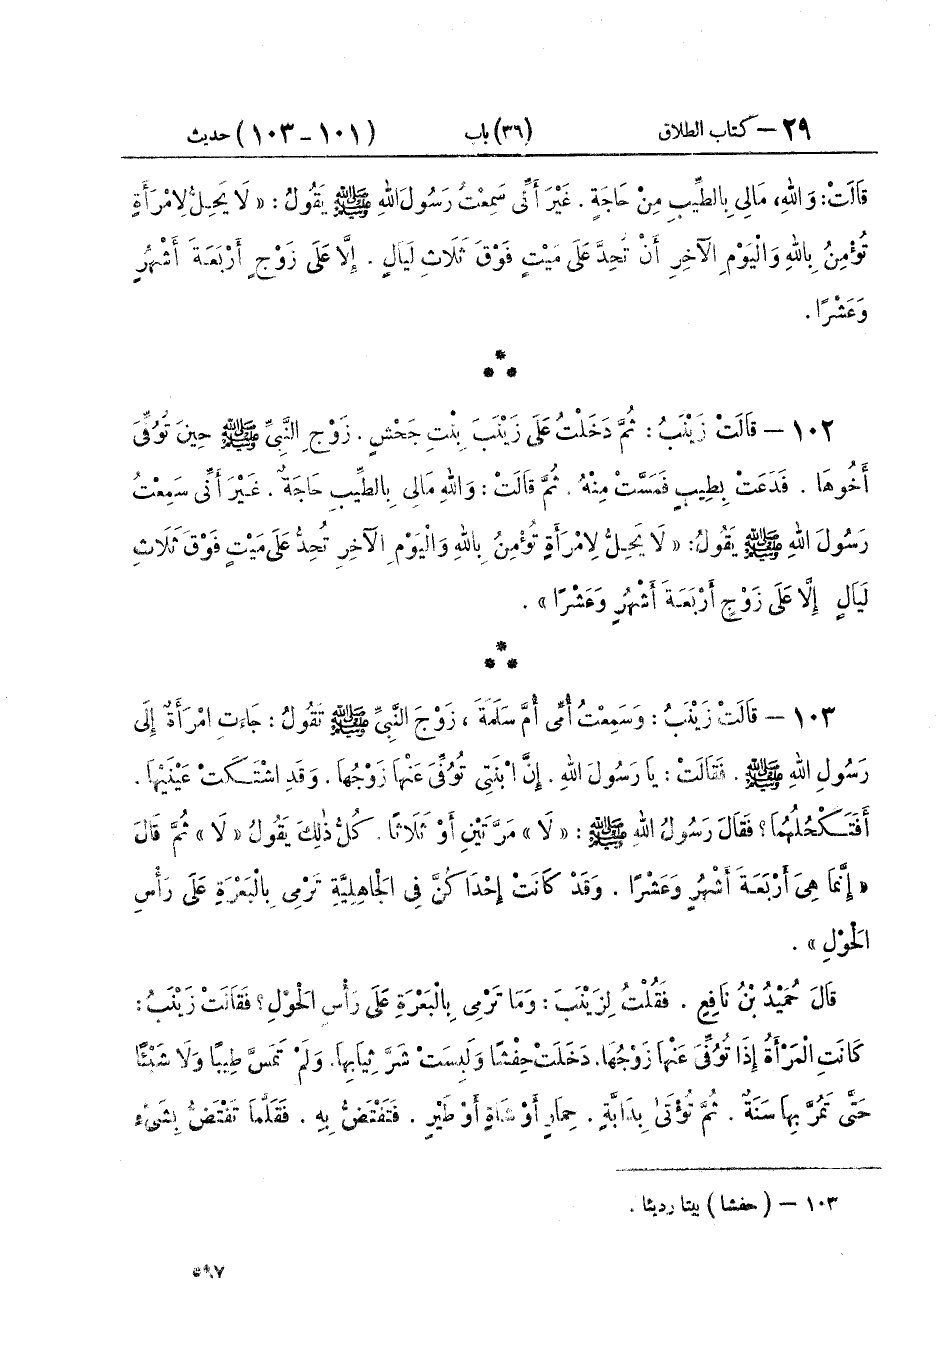 ٢٩ – كتاب الطلاق (٣٦) باب (١٠١ – ١٠٣) حديث
قَالَتْ: وَاللهِ، مَالِي بِالطِّيبِ مِنْ حَاجَةٍ . غَيْرَ أَنِّي سَمِعْتُ رَسُولَ اللهِ ﷺ يَقُولُ : « لَا يَحِلُّ لِامْرَأَةٍ
تُؤْمِنُ بِاللهِ وَالْيَوْمِ الآخِرِ أَنْ تُحِدَّ عَلَى مَيْتٍ فَوْقَ ثَلَاثِ لَيَالٍ . إِلَّا عَلَى زَوْجٍ أَرْبَعَةَ أَشْهُرٍ
وَعَشْرًا .
*
* *
١٠٢ – قَالَتْ زَيْنَبُ : ثُمَّ دَخَلْتُ عَلَى زَيْنَبَ بِنْتِ جَحْشٍ . زَوْجِ النَّبِيِّ ﷺ حِينَ تُوُفِّيَ
أَخُوهَا . فَدَعَتْ بِطِيبٍ فَمَسَّتْ مِنْهُ . ثُمَّ قَالَتْ : وَاللهِ مَالِي بِالطِّيبِ حَاجَةٌ . غَيْرَ أَنِّي سَمِعْتُ
رَسُولَ اللهِ ﷺ يَقُولُ: « لَا يَحِلُّ لِامْرَأَةٍ تُؤْمِنُ بِاللهِ وَالْيَوْمِ الآخِرِ تُحِدُّ عَلَى مَيْتٍ فَوْقَ ثَلَاثِ
لَيَالٍ إِلَّا عَلَى زَوْجٍ أَرْبَعَةَ أَشْهُرٍ وَعَشْرًا » .
*
* *
١٠٣ – قَالَتْ زَيْنَبُ : وَسَمِعْتُ أُمِّي أُمَّ سَلَمَةَ ، زَوْجَ النَّبِيِّ ﷺ تَقُولُ : جَاءَتِ امْرَأَةٌ إِلَى
رَسُولِ اللهِ ﷺ . فَقَالَتْ : يَا رَسُولَ اللهِ . إِنَّ ابْنَتِي تُوُفِّيَ عَنْهَا زَوْجُهَا . وَقَدِ اشْتَكَتْ عَيْنَيْهَا .
أَفَتَكْحُلُهُمَا ؟ فَقَالَ رَسُولُ اللهِ ﷺ : « لَا » مَرَّتَيْنِ أَوْ ثَلَاثًا . كُلُّ ذٰلِكَ يَقُولُ « لَا » ثُمَّ قَالَ
« إِنَّمَا هِيَ أَرْبَعَةَ أَشْهُرٍ وَعَشْرًا . وَقَدْ كَانَتْ إِحْدَاكُنَّ فِي الجَاهِلِيَّةِ تَرْمِي بِالْبَعْرَةِ عَلَى رَأْسِ
الحَوْلِ » .
قَالَ حُمَيْدُ بْنُ نَافِعٍ . فَقُلْتُ لِزَيْنَبَ : وَمَا تَرْمِي بِالْبَعْرَةِ عَلَى رَأْسِ الحَوْلِ ؟ فَقَالَتْ زَيْنَبُ :
كَانَتِ الْمَرْأَةُ إِذَا تُوُفِّيَ عَنْهَا زَوْجُهَا. دَخَلَتْ حِفْشًا وَلَبِسَتْ شَرَّ ثِيَابِهَا. وَلَمْ تَمَسَّ طِيبًا وَلَا شَيْئًا
حَتَّى تَمُرَّ بِهَا سَنَةٌ . ثُمَّ تُؤْتَى بِدَابَّةٍ . حِمَارٍ أَوْ شَاةٍ أَوْ طَيْرٍ . فَتَفْتَضُّ بِهِ . فَقَلَّمَا تَفْتَضُّ بِشَيْءٍ
١٠٣ – ( حفشا ) بيتا رديئا .
٥٩٧